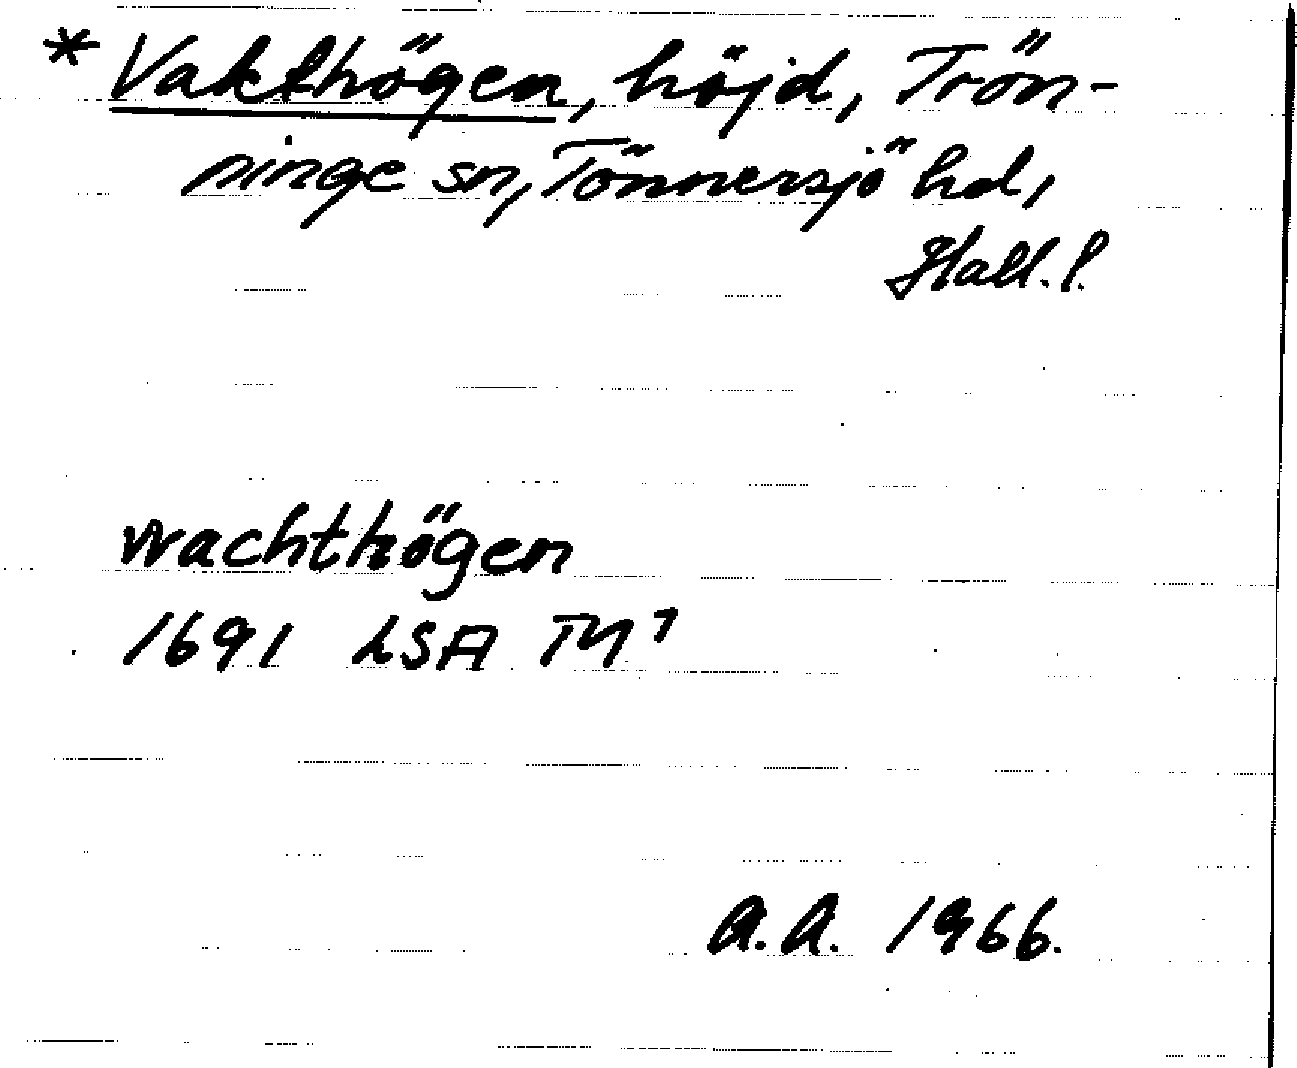 * Vakthögen, höjd, Trön-
ninge sn, Tönnersjö hd,
Hall. l.
wachthögen
1691 LSA TM⁷
A.A. 1966.